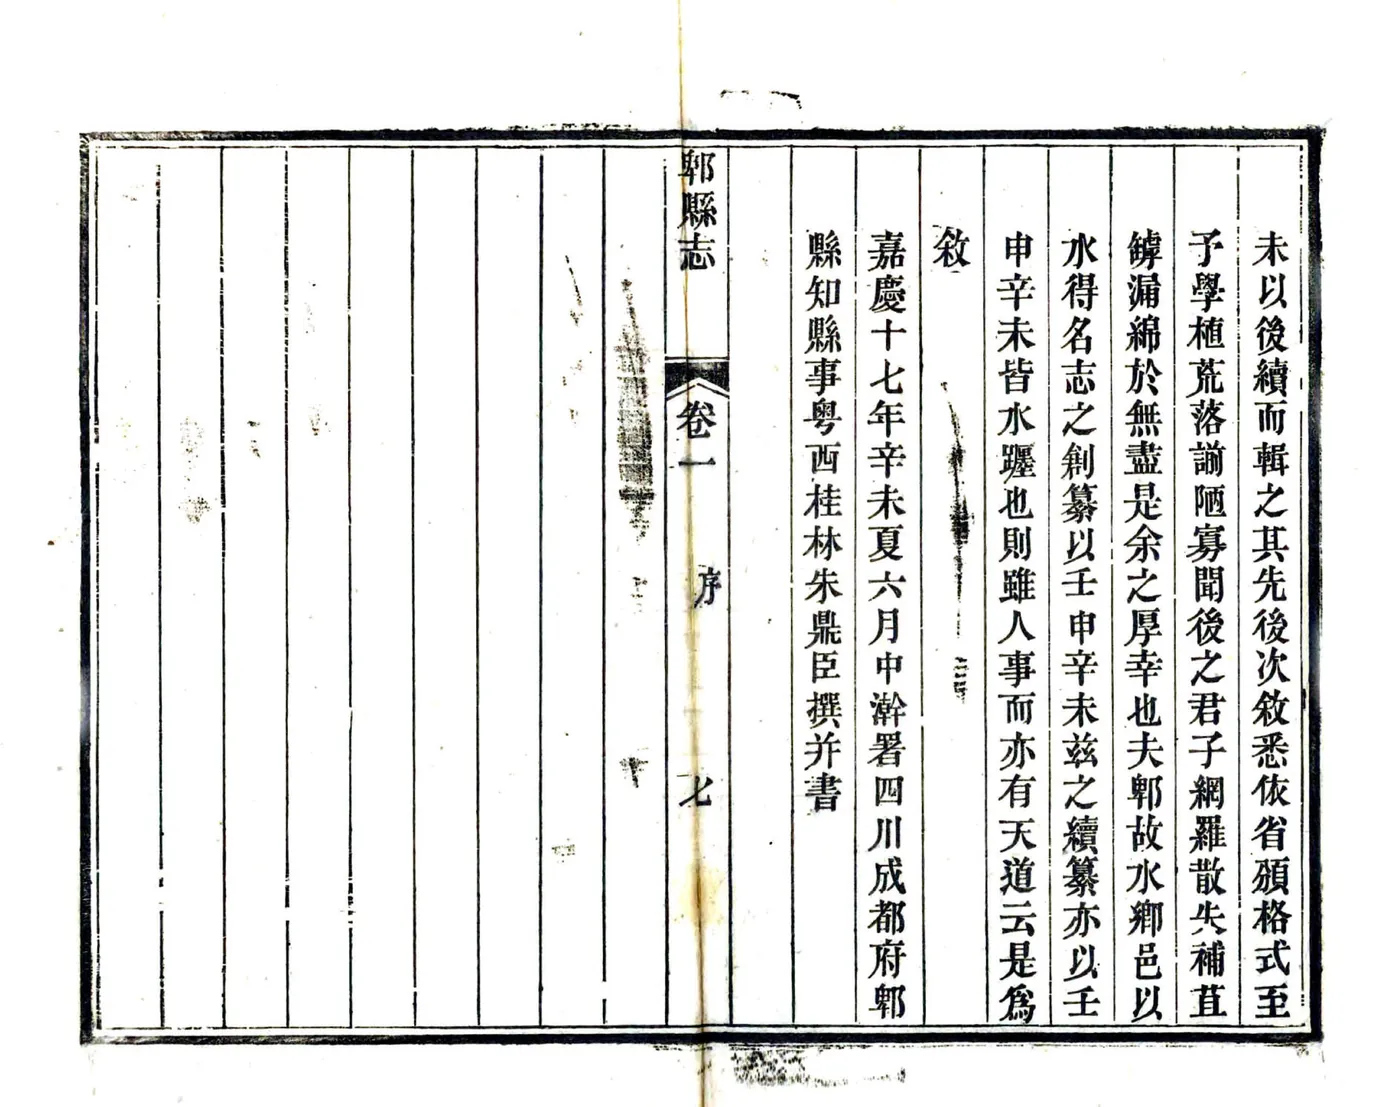 未以後續而輯之其先後次敘悉依省頒格式至
予學植荒落謭陋寡聞後之君子網羅散失補苴
罅漏綿於無盡是余之厚幸也夫郫故水鄉邑以
水得名志之創纂以壬申辛未茲之續纂亦以壬
申辛未皆水躔也則雖人事而亦有天道云是爲
敘
嘉慶十七年辛未夏六月中澣署四川成都府郫
縣知縣事粤西桂林朱鼎臣撰并書
郫縣志
卷一
序